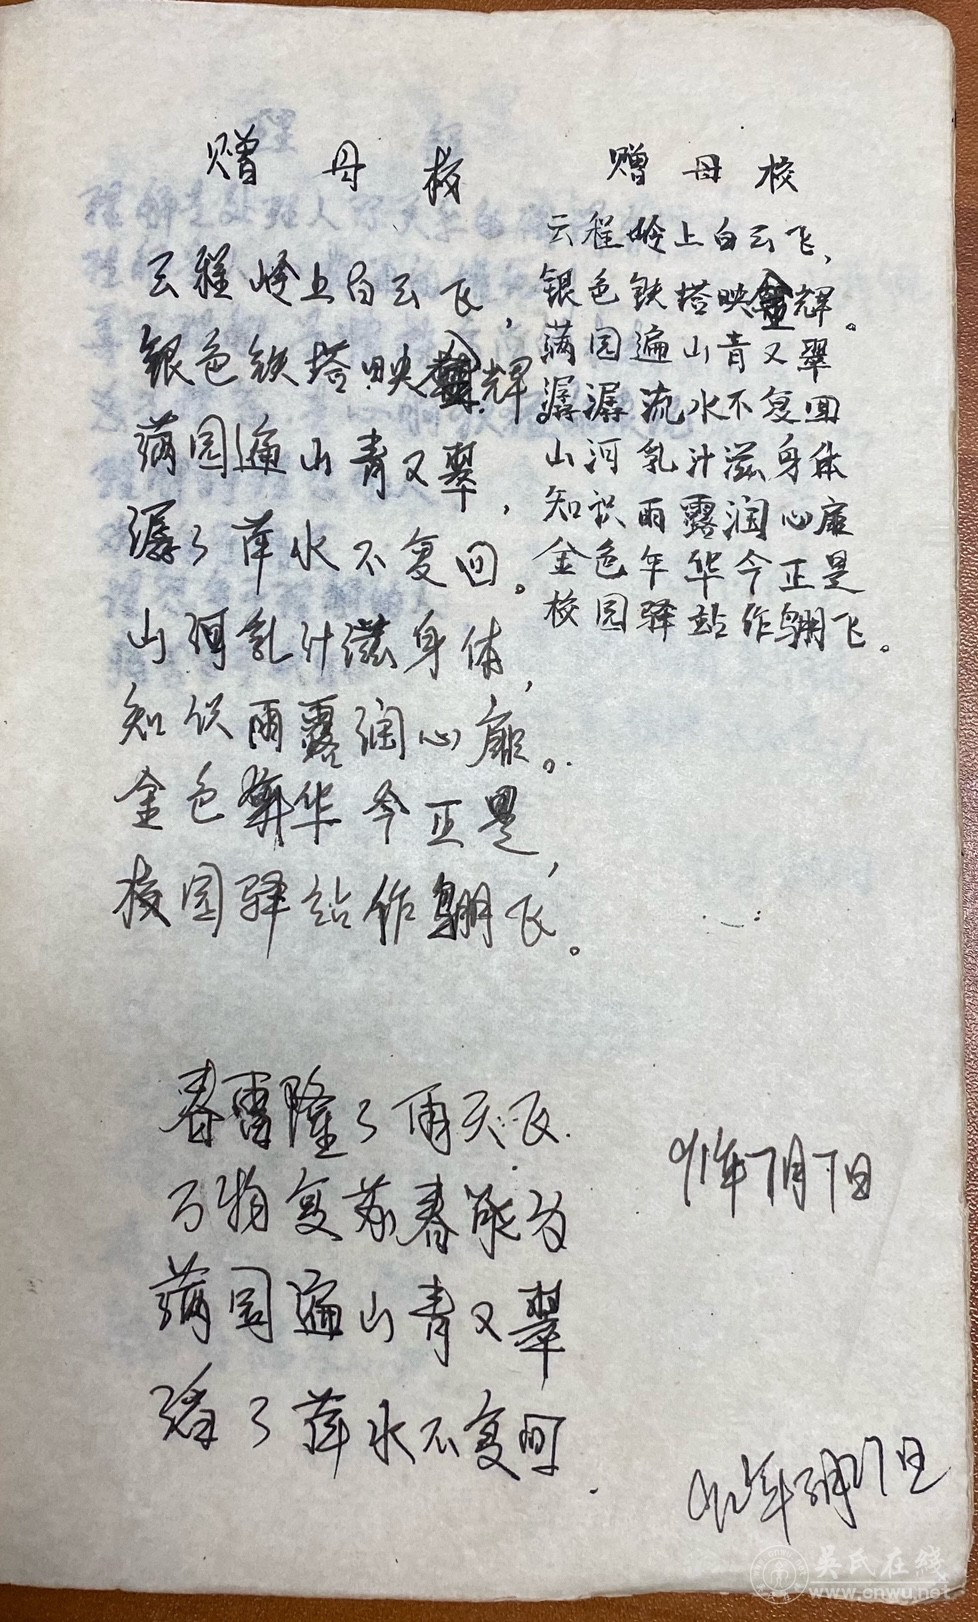 赠母校
云程岭上白云飞，
银色铁塔映金辉。
满园遍山青又翠，
潺々萍水不复回。
山河乳汁滋身体，
知识雨露润心扉。
金色年华今正是，
校园驿站作翱飞。
赠母校
云程岭上白云飞，
银色铁塔映金辉。
满园遍山青又翠
潺潺流水不复回
山河乳汁滋身体
知识雨露润心扉
金色年华今正是
校园驿站作翱飞。
春雷隆々雨天飞.
万物复苏春能为
满园遍山青又翠
潺々萍水不复回.
91年7月7日
92年3月27日
吴氏在线
www.cnwu.net